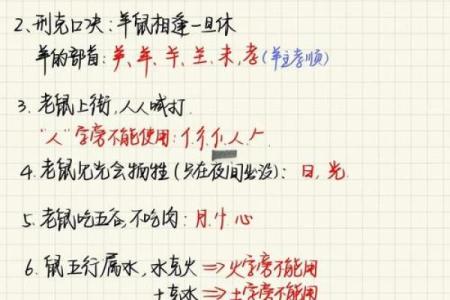 2、刑克口决:羊鼠相逢一旦休
羊的部首:⺶、羊、⺷、𦍌、未,孝(羊主孝顺)
3、老鼠上街,人人喊打.
"人"字旁不能使用:亻.彳.亻.人.𠂉
4、老鼠见光会牺牲(只在夜间出没):日,光
5、老鼠吃五谷,不吃肉:月.忄.心
6、鼠五行属水,水克火⇒火字旁不能用
土克水⇒土字旁不能用